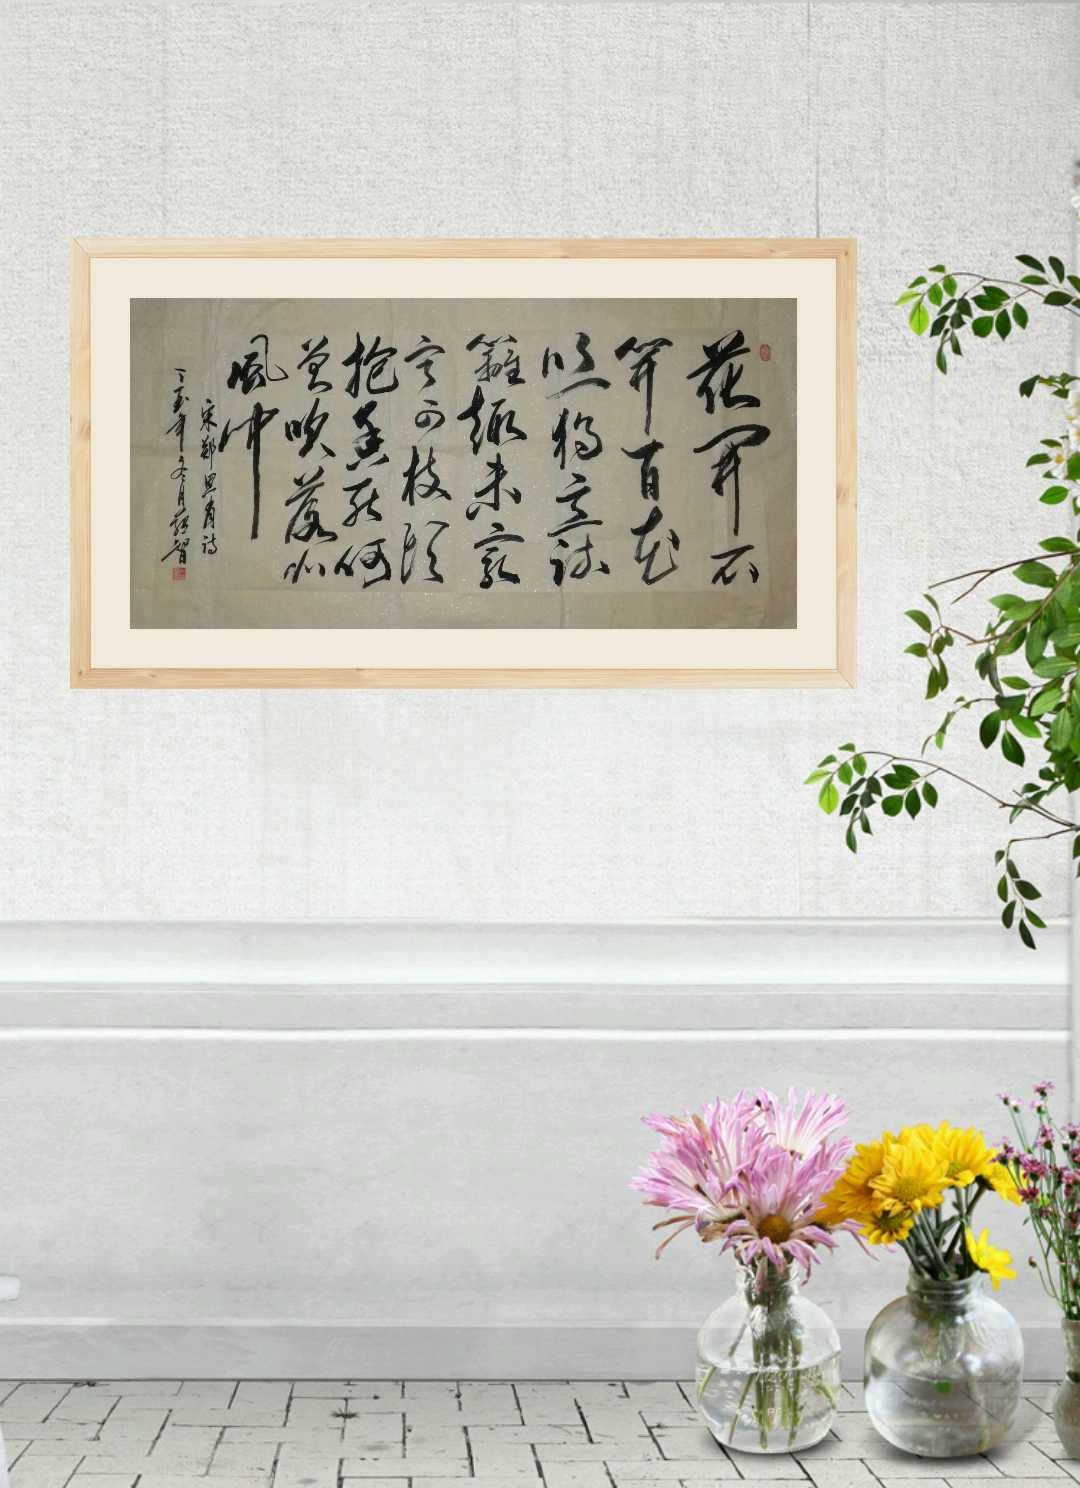 花開不
并百花
丛獨立疏
籬趣未窮
寧可枝頭
抱香死何
曾吹落北
風中
宋鄭思肖詩
年冬月